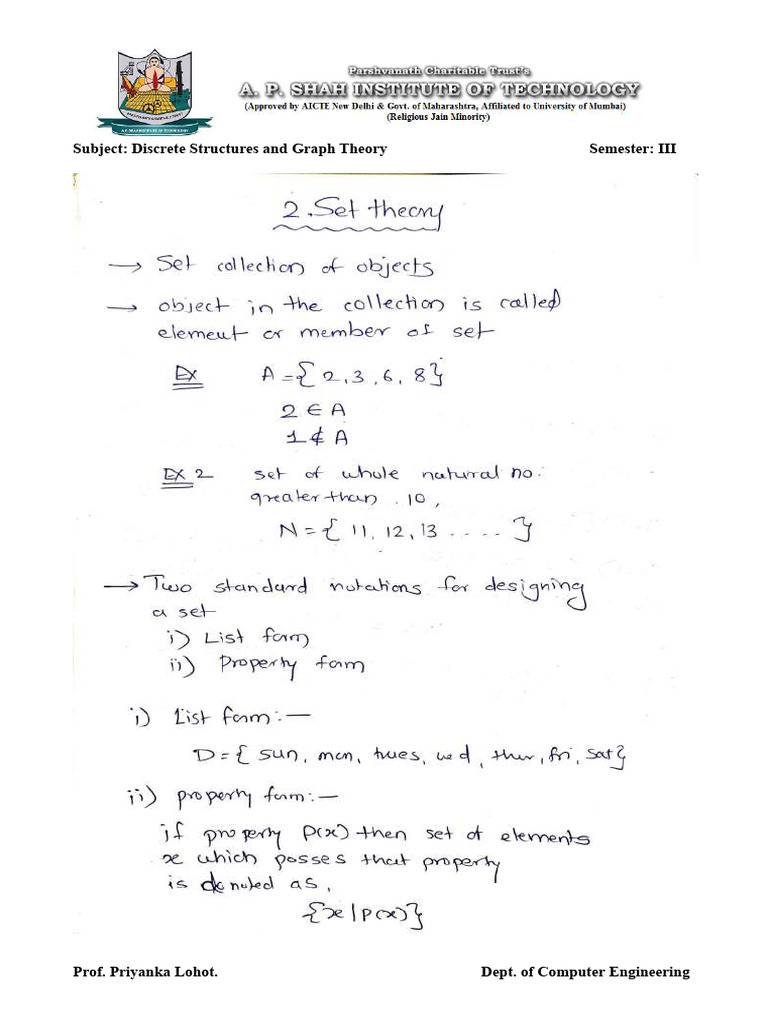 Parshvanath Charitable Trust's
A. P. SHAH INSTITUTE OF TECHNOLOGY
(Approved by AICTE New Delhi & Govt. of Maharashtra, Affiliated to University of Mumbai)
(Religious Jain Minority)
Subject: Discrete Structures and Graph Theory Semester: III
2. Set theory
→ Set collection of objects
→ object in the collection is called
element or member of set
Ex A = { 2, 3, 6, 8}
2 ∈ A
1 ∉ A
EX 2 set of whole natural no.
greater than 10,
N = { 11, 12, 13 ..... }
→ Two standard notations for designing
a set
i) List form
ii) Property form
i) List form:—
D = { sun, mon, tues, wed, thur, fri, sat}
ii) property form:—
if property p(x) then set of elements
x which posses that property
is denoted as,
{x | p(x)}
Prof. Priyanka Lohot. Dept. of Computer Engineering